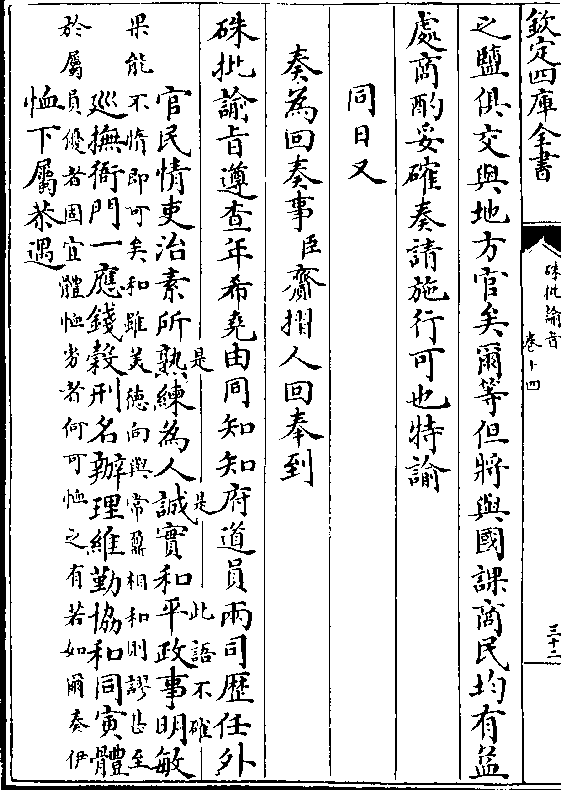 欽定四庫全書
硃批諭旨
卷十四
三十二
之鹽俱交與地方官矣爾等但將與國課商民均有益
處商酌妥確奏請施行可也特諭
同日又
奏為回奏事臣齎摺人回奉到
硃批諭旨遵查年希堯由同知知府道員兩司歷任外
是 是 此語不確
官民情吏治素所熟練為人誠實和平政事明敏
果能不惰即可矣和雖美德向與常鼐相和則謬甚至
巡撫衙門一應錢穀刑名辦理維勤協和同寅體
於屬員優者固宜體恤劣者何可恤之有若如爾奏伊
恤下屬恭遇